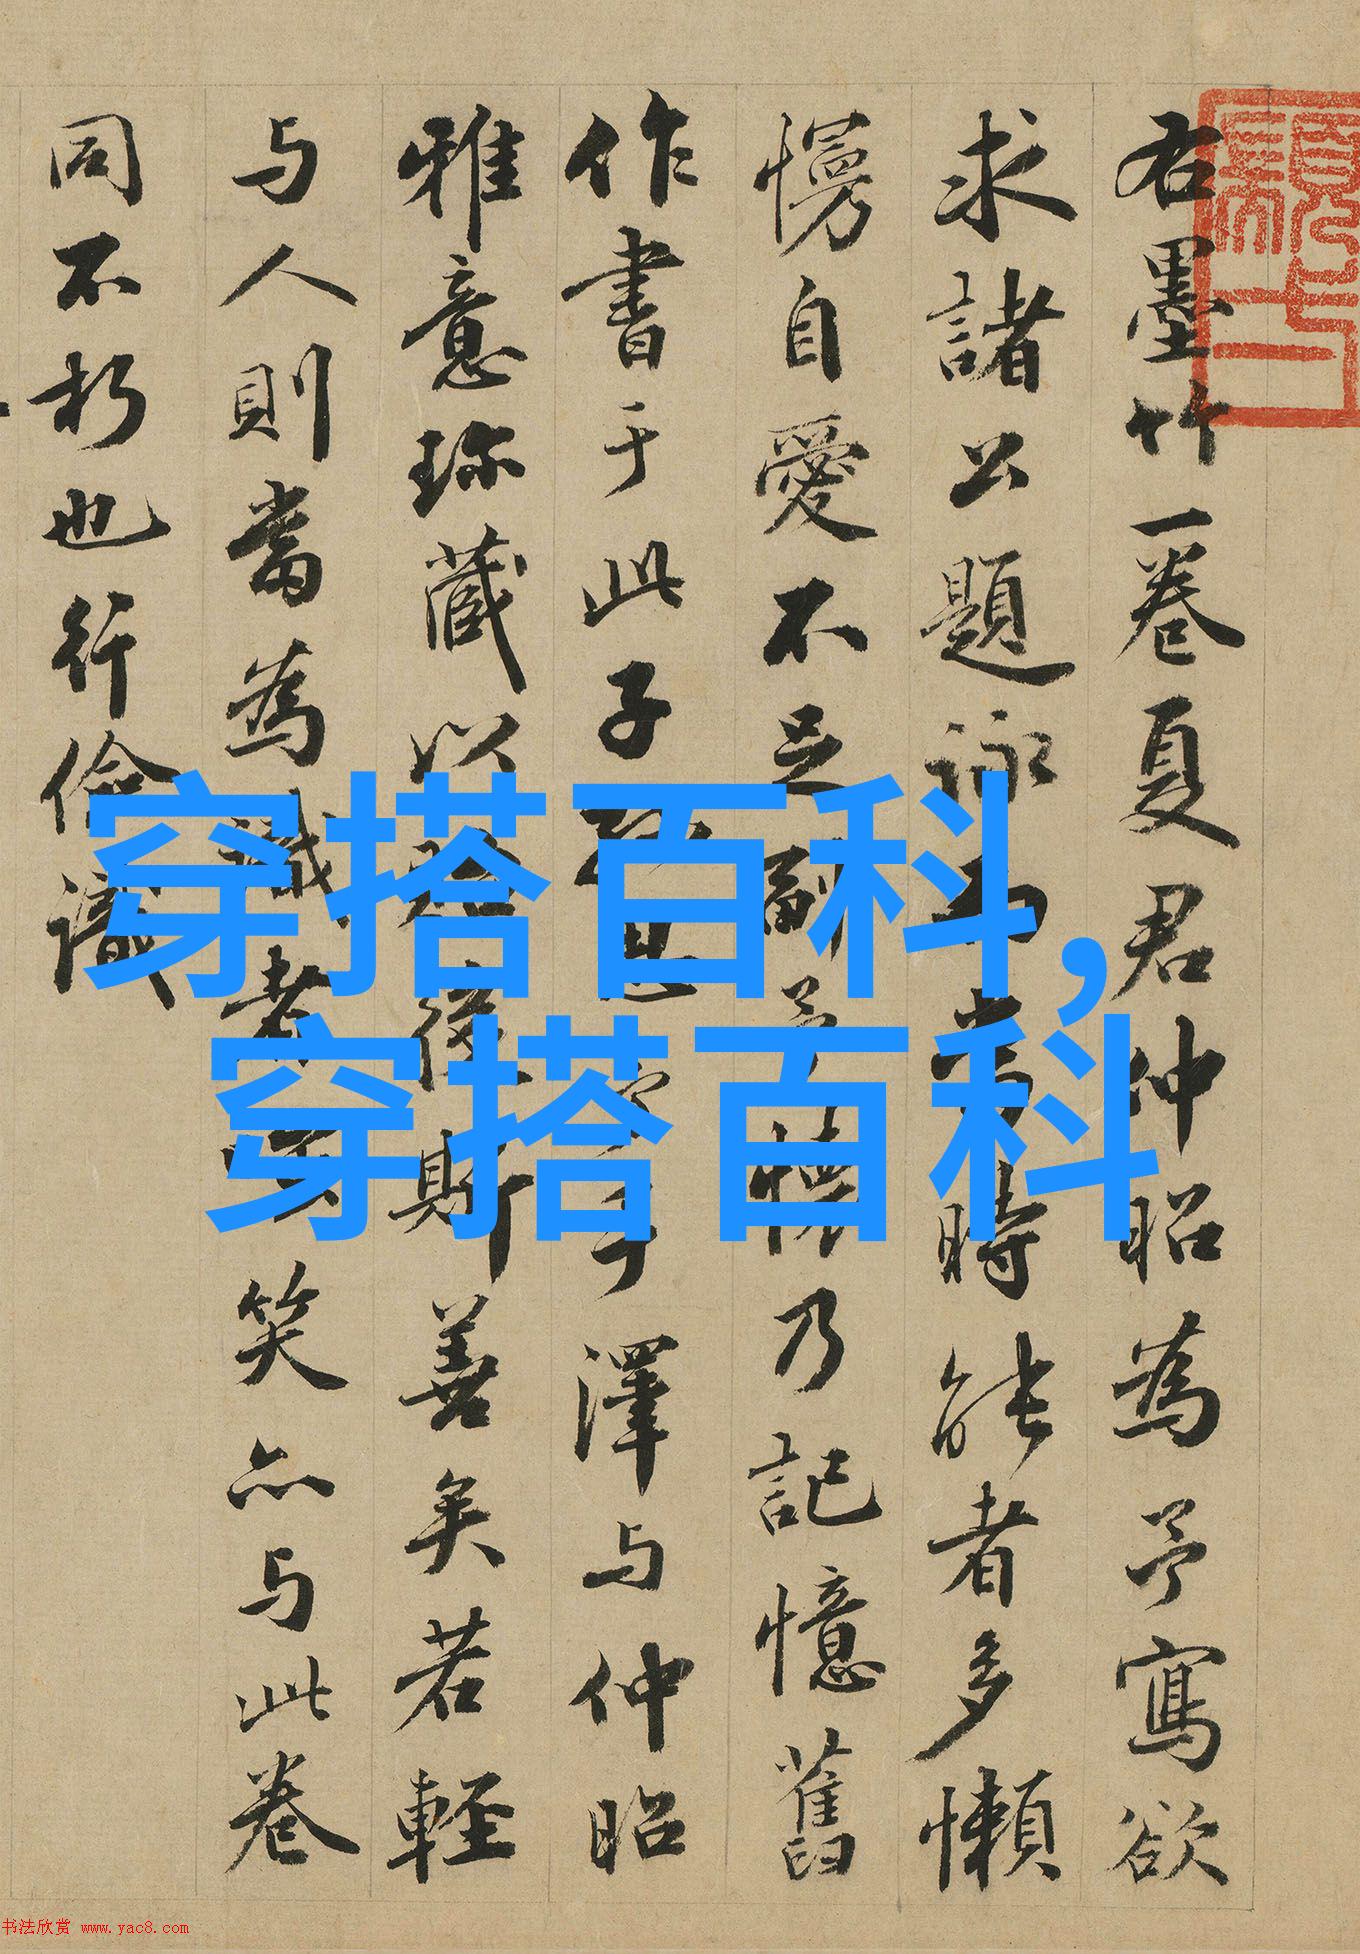 右墨竹一卷夏君仲昭為予寫欲
求諸公題詠而當時能者多懶
慢自愛不足副予懷乃記憶舊
作書于此子手澤与仲昭
雅意珎藏以貽後斯善矣若輕
与人則當為識者笑亦与此卷
同不朽也行儉識
穿搭百科,
穿搭百科
书法欣赏 www.yac8.com